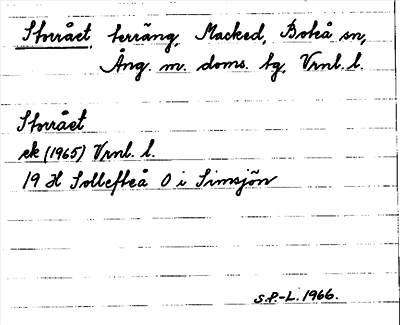 Storrået, terräng, Macked, Boteå sn,
Ång. m. doms. tg, Vrnl. l.
Storrået
ek (1965) Vrnl. l.
19 H Sollefteå O i Simsjön
S.P.-L. 1966.